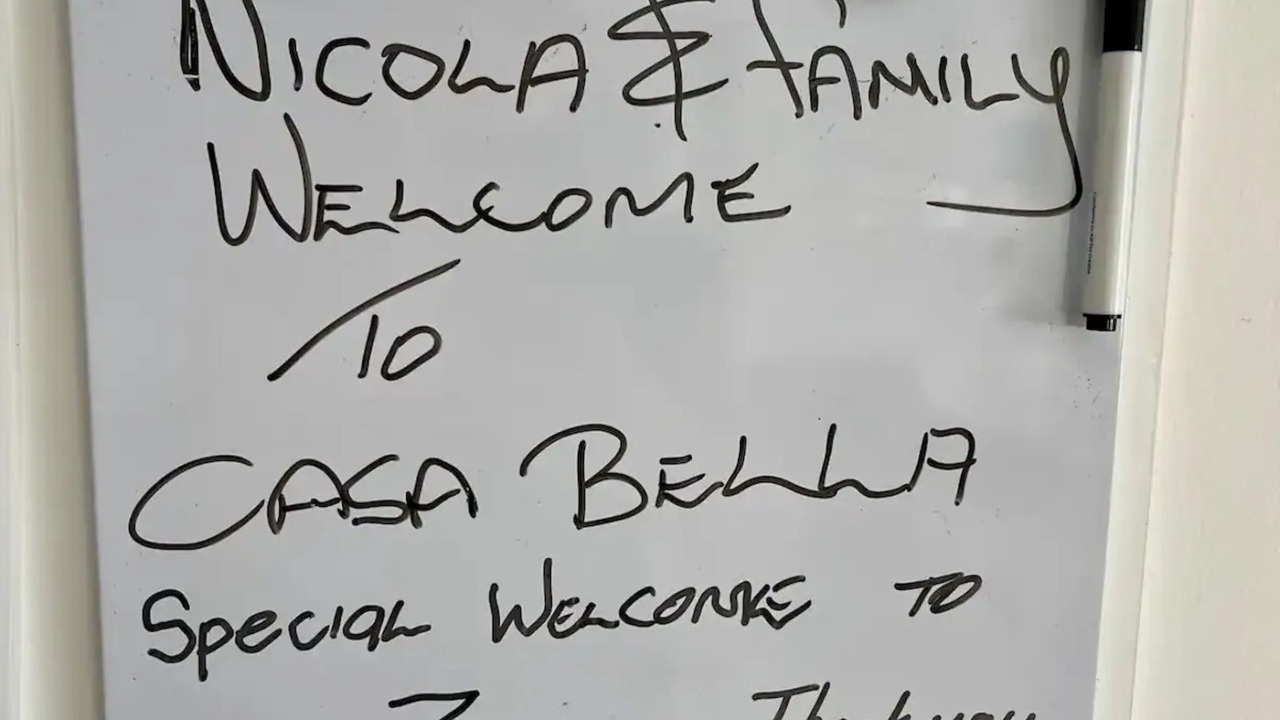 NICOLA & FAMILY
WELCOME
TO
CASA BELLA
SPECIAL WELCOME TO